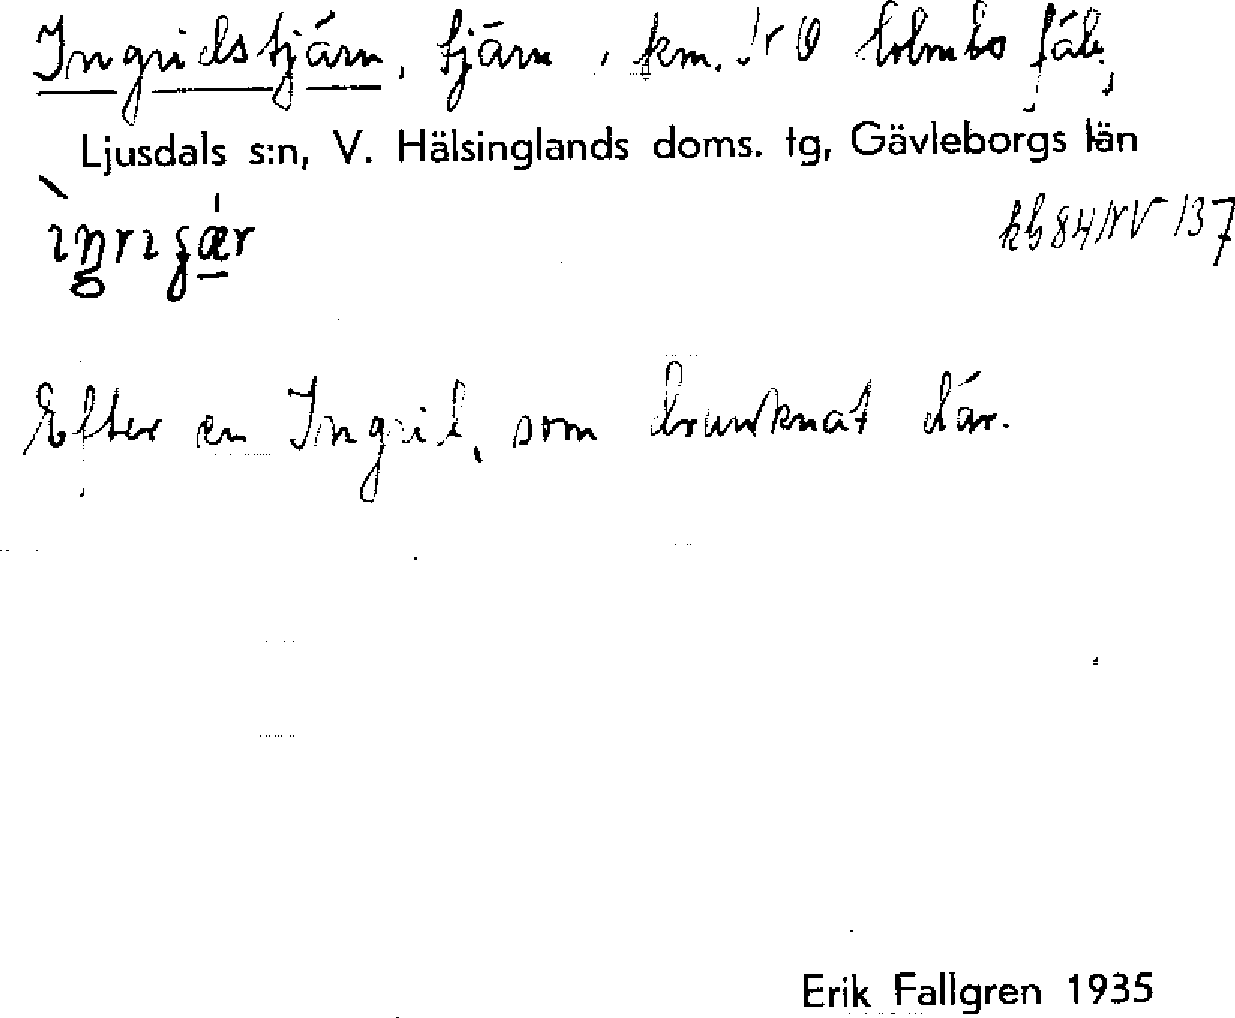 Ingridstjärn, tjärn, km. NO Holmbo fäb.,
Ljusdals s:n, V. Hälsinglands doms. tg, Gävleborgs län
kb 84 NV 137
Efter en Ingrid, som drunknat där.
Erik Fallgren 1935